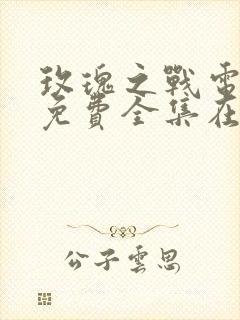 玫瑰之戰電
免費全集在
公子雲思